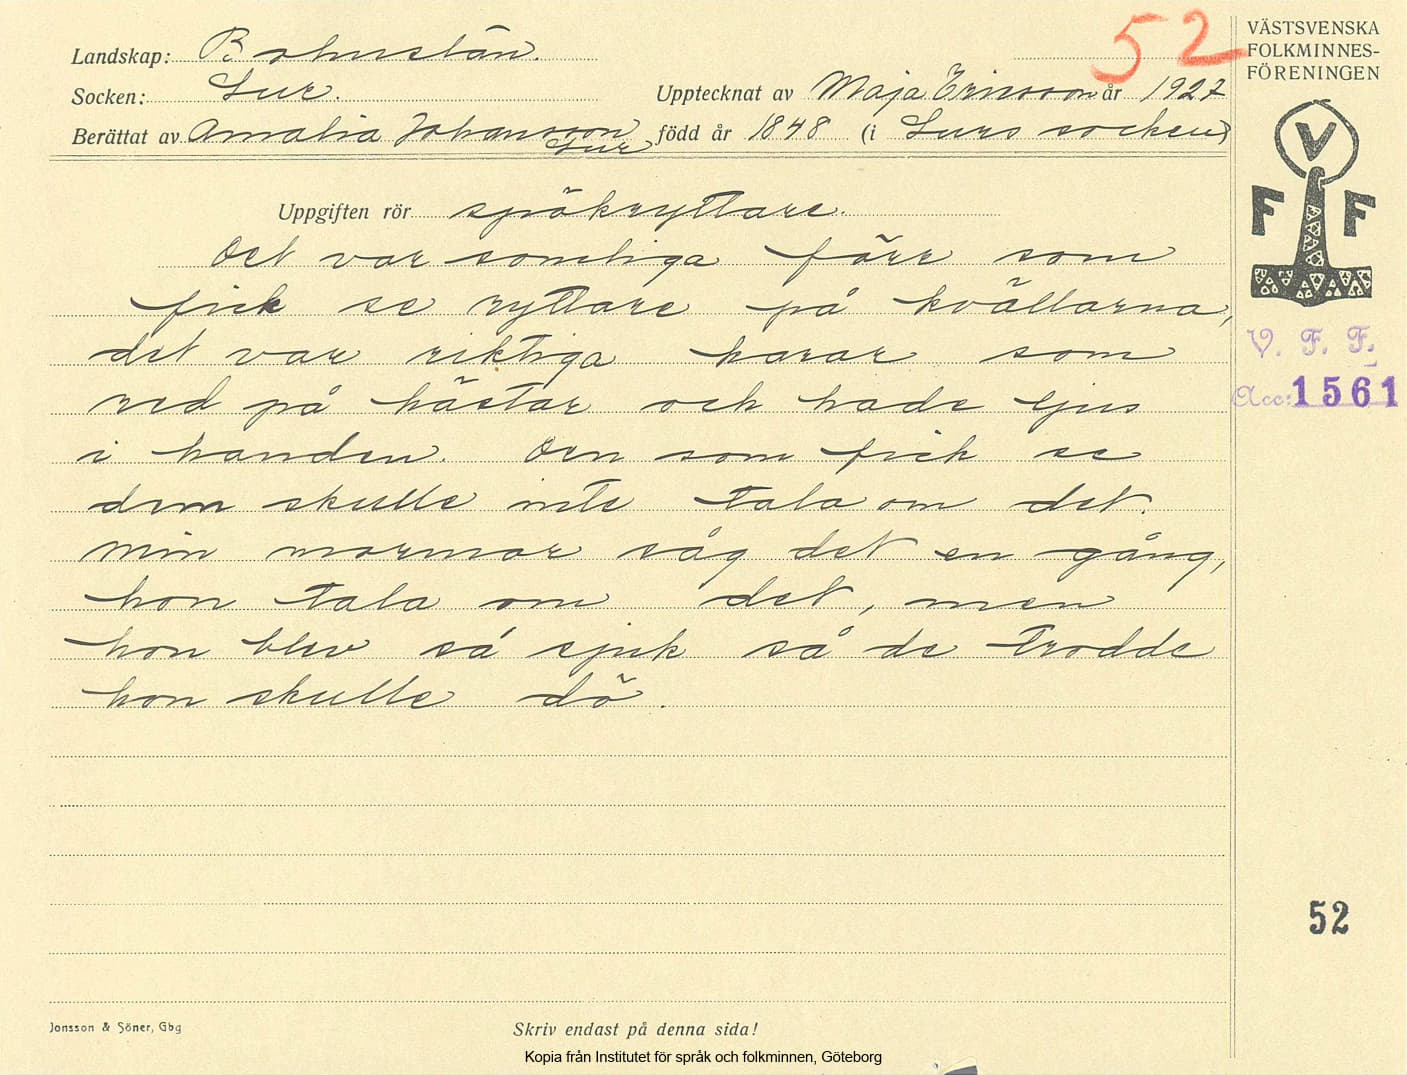 52
VÄSTSVENSKA
FOLKMINNES-
FÖRENINGEN
Landskap: Bohuslän.
Socken: Lur. Upptecknat av Maja Ericsson år 1927
Berättat av Amalia Johansson Lur född år 1848 (i Lurs socken)
V
F F
V. F. F.
Acc: 1561
Uppgiften rör spökryttare.
Det var somliga förr som
fick se ryttare på kvällarna,
det var riktiga karar som
red på hästar och hade ljus
i handen. Den som fick se
dem skulle inte tala om det.
Min mormor såg det en gång,
hon tala om det, men
hon blev så sjuk så de trodde
hon skulle dö.
52
Jonsson & Söner, Gbg
Skriv endast på denna sida!
Kopia från Institutet för språk och folkminnen, Göteborg